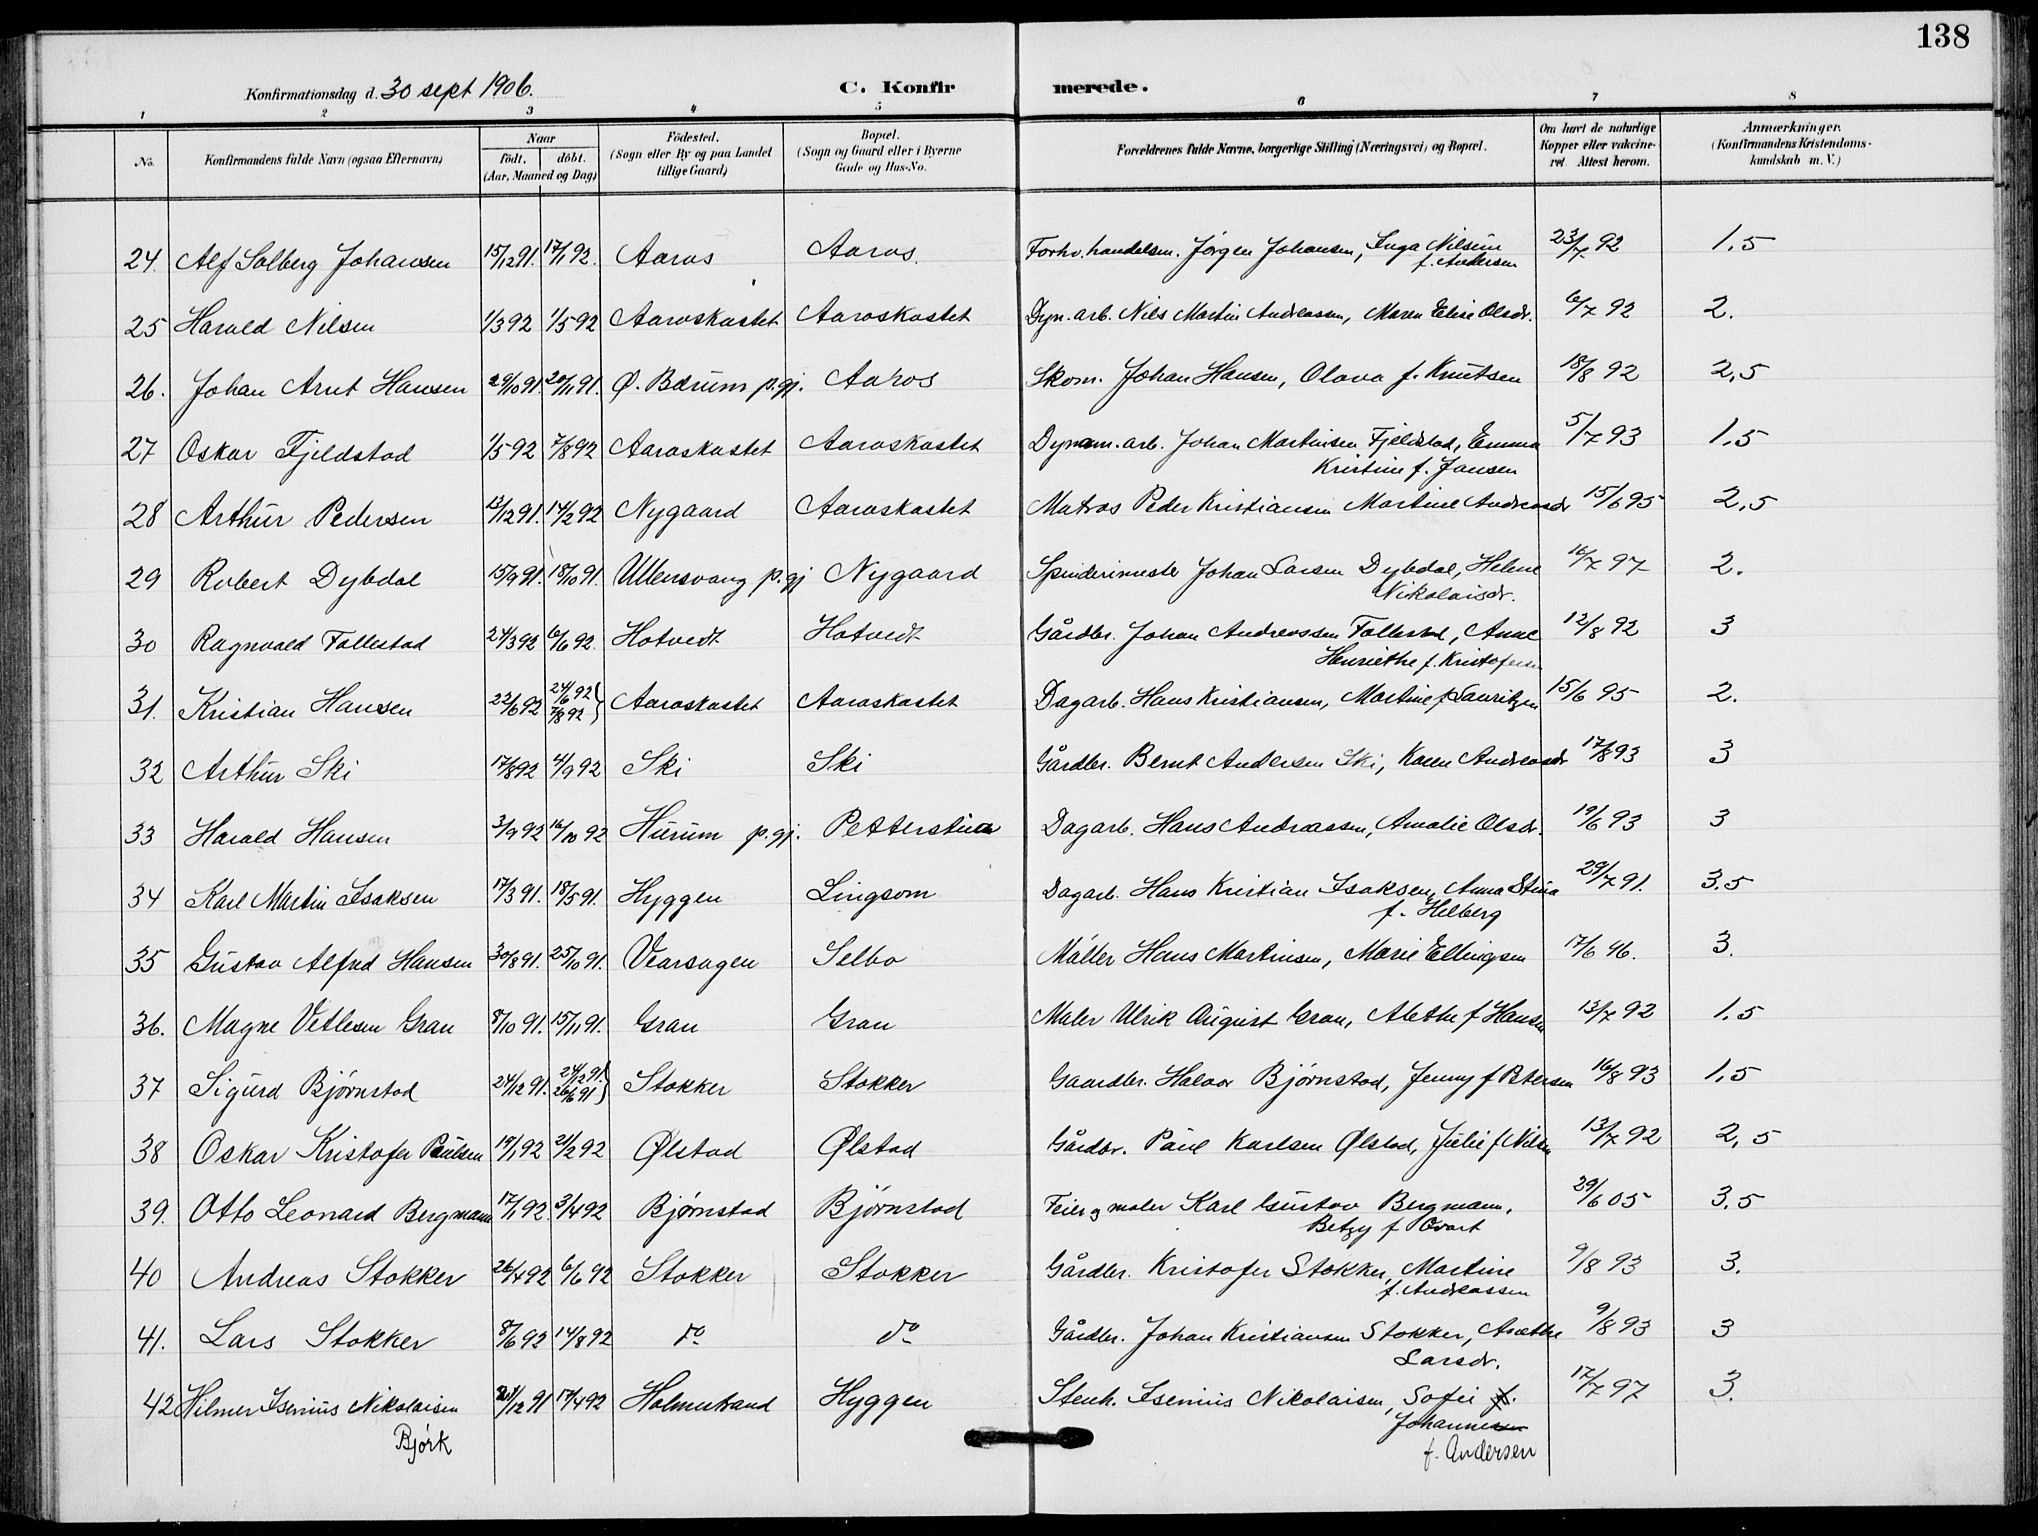 138
Konfirmationsdag d. 30 sept 1906.
C. Konfirmerede.
1 2 3 4 5 6 7 8
No.
Konfirmandens fulde Navn (ogsaa Efternavn)
Naar
födt. döbt.
(Aar, Maaned og Dag)
Födested.
(Sogn eller By og paa Landet
tillige Gaard)
Bopæl.
(Sogn og Gaard eller i Byerne
Gade og Hus-No.
Forældrenes fulde Navne, borgerlige Stilling (Næringsvei) og Bopæl.
Om havt de naturlige
Kopper eller vakcine-
ret. Attest herom.
Anmærkninger.
(Konfirmandens Kristendoms-
kundskab m. V.)
24. Alf Solberg Johansen 15/12 91. 17/1 92. Aaros Aaros. Forhv. handelsm. Jörgen Johansen, Inga Nilsine 23/7 92 1.5
f. Andersen
25 Harald Nilsen 1/3 92 1/5 92 Aaroskastet Aaroskastet Dyn. arb. Nils Martin Andreassen, Maren Elise Olsdr. 6/7 92 2.
26. Johan Arnt Hansen 29/10 91. 20/11 91. Ø. Bærum p.gj. Aaros Skom. Johan Hansen, Olava f. Knutsen 18/8 92 2,5
27 Oskar Fjeldstad 1/5 92 7/8 92 Aaroskastet Aaroskastet Dynam. arb. Johan Martinsen Fjeldstad, Emma 5/7 93 1,5
Kristine f. Jansen
28 Arthur Pedersen 13/12 91. 14/2 92 Nygaard Aaroskastet Matros Peder Kristiansen Martine Andreasdr 15/6 95 2,5
29 Robert Dybdal 15/9 91. 18/10 91. Ullensvang p.gj Nygaard Spinderimester Johan Larsen Dybdal, Helene 16/7 97 2.
Nikolaisdr.
30 Ragnvald Follestad 24/3 92 6/6 92. Hotvedt Hotvedt Gårdbr. Johan Andreassen Follestad, Anne 12/8 92 3
Henriethe f. Kristofersen
31. Kristian Hansen 22/6 92 24/6 92 Aaroskastet Aaroskastet Dagarb. Hans Kristiansen, Martine f Lauritzen 15/6 95 2.
7/8 92
32 Arthur Ski 17/8 92 4/9 92 Ski Ski Gårdbr. Bernt Andersen Ski, Karen Andreasdr 17/8 93 3
33 Harald Hansen 3/9 92 16/10 92 Hurum p.gj. Petterstua Dagarb. Hans Andreassen, Amalie Olsdr. 19/6 93 3
34 Karl Martin Isaksen 17/3 91. 18/5 91. Hyggen Lingsom Dagarb. Hans Kristian Isaksen, Anna Stina 29/7 91. 3.5
f. Helberg
35 Gustav Alfred Hansen 30/8 91. 25/10 91. Vearsagen Selbo Möller Hans Martinsen, Marie Ellingsen 17/6 96. 3.
36. Magne Vetlesen Gran 8/10 91. 15/11 91. Gran Gran Maler Ulrik August Gran, Alethe f Hansen 13/7 92 1.5
37 Sigurd Bjørnstad 24/12 91. 24/12 91. Stokker Stokker Gaardbr. Halvor Bjørnstad, Jenny f Petersen 16/8 93 1,5
26/6 91
38 Oskar Kristofer Paulsen 19/1 92 21/2 92 Ølstad Ølstad Gårdbr. Paul Karlsen Ølstad, Julie f Nilsen 13/7 92 2,5
39. Otto Leonard Bergmann 17/1 92. 3/4 92 Bjørnstad Bjørnstad Feier og maler Karl Gustav Bergmann, 29/6 05 3.5
Betzy f Qvart
40 Andreas Stokker 26/4 92 6/6 92 Stokker Stokker Gårdbr. Kristofer Stokker, Martine 9/8 93 3.
f. Andreassen
41. Lars Stokker 8/6 92 14/8 92 do do Gårdbr. Johan Kristiansen Stokker, Anethe 9/8 93 3
Larsdr.
42 Hilmer Isenius Nikolaisen 21/12 91 17/4 92 Holmestrand Hyggen Stenh. Isenius Nikolaisen, Sofie f. 17/7 97 3.
Bjørk Johannesen
f. Andersen